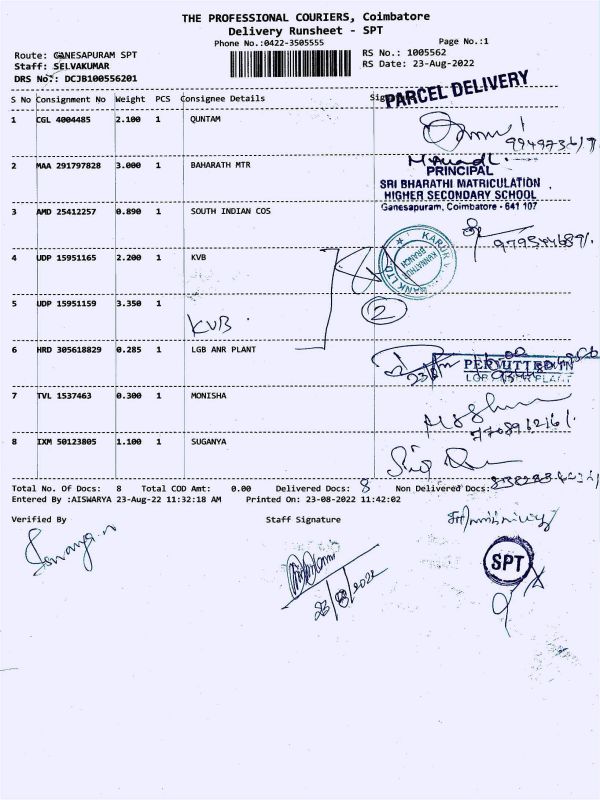 THE PROFESSIONAL COURIERS, Coimbatore
Delivery Runsheet - SPT
Phone No.:0422-3505555
Page No.:1
Route: GANESAPURAM SPT
RS No.: 1005562
Staff: SELVAKUMAR
RS Date: 23-Aug-2022
DRS No.: DCJB100556201
PARCEL DELIVERY
S No Consignment No Weight PCS Consignee Details
1 CGL 4004485 2.100 1 QUNTAM
2 MAA 291797828 3.000 1 BAHARATH MTR
PRINCIPAL
SRI BHARATHI MATRICULATION
HIGHER SECONDARY SCHOOL
Ganesapuram, Coimbatore - 641 107
3 AMD 25412257 0.890 1 SOUTH INDIAN COS
4 UDP 15951165 2.200 1 KVB
KARUR
BRANCH
BANK LTD
5 UDP 15951159 3.350 1
KVB
2
6 HRD 305618829 0.285 1 LGB ANR PLANT
7 TVL 1537463 0.300 1 MONISHA
8 IXM 50123805 1.100 1 SUGANYA
Total No. Of Docs: 8 Total COD Amt: 0.00 Delivered Docs: 8 Non Delivered Docs:
Entered By :AISWARYA 23-Aug-22 11:32:18 AM Printed On: 23-08-2022 11:42:02
Verified By
Staff Signature
SPT
23/8/2022